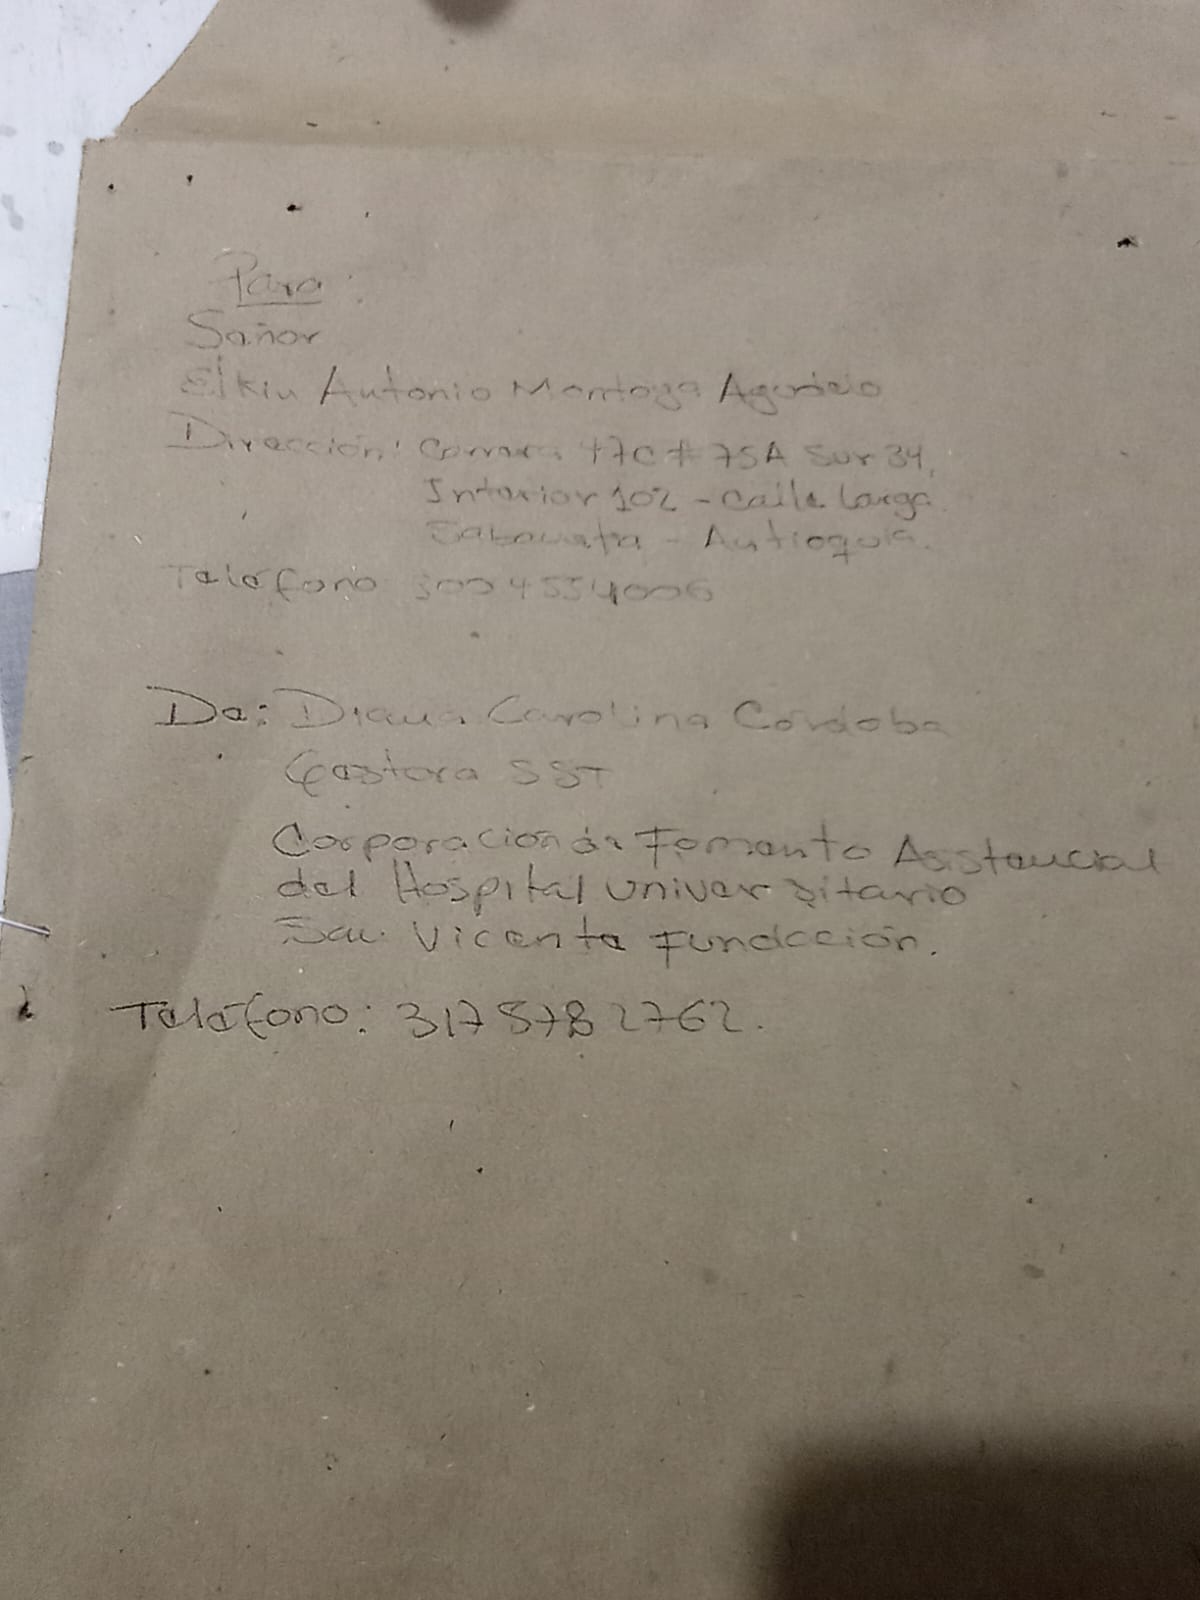 Para:
Señor
Elkin Antonio Montoya Agudelo
Dirección: Carrera 47C # 75A Sur 34,
Interior 102 - Calle larga
Sabaneta - Antioquia.
Teléfono 3004554006
De: Diana Carolina Córdoba
Gestora SST
Corporación de Fomento Asistencial
del Hospital Universitario
San Vicente Fundación.
Teléfono: 3175782762.